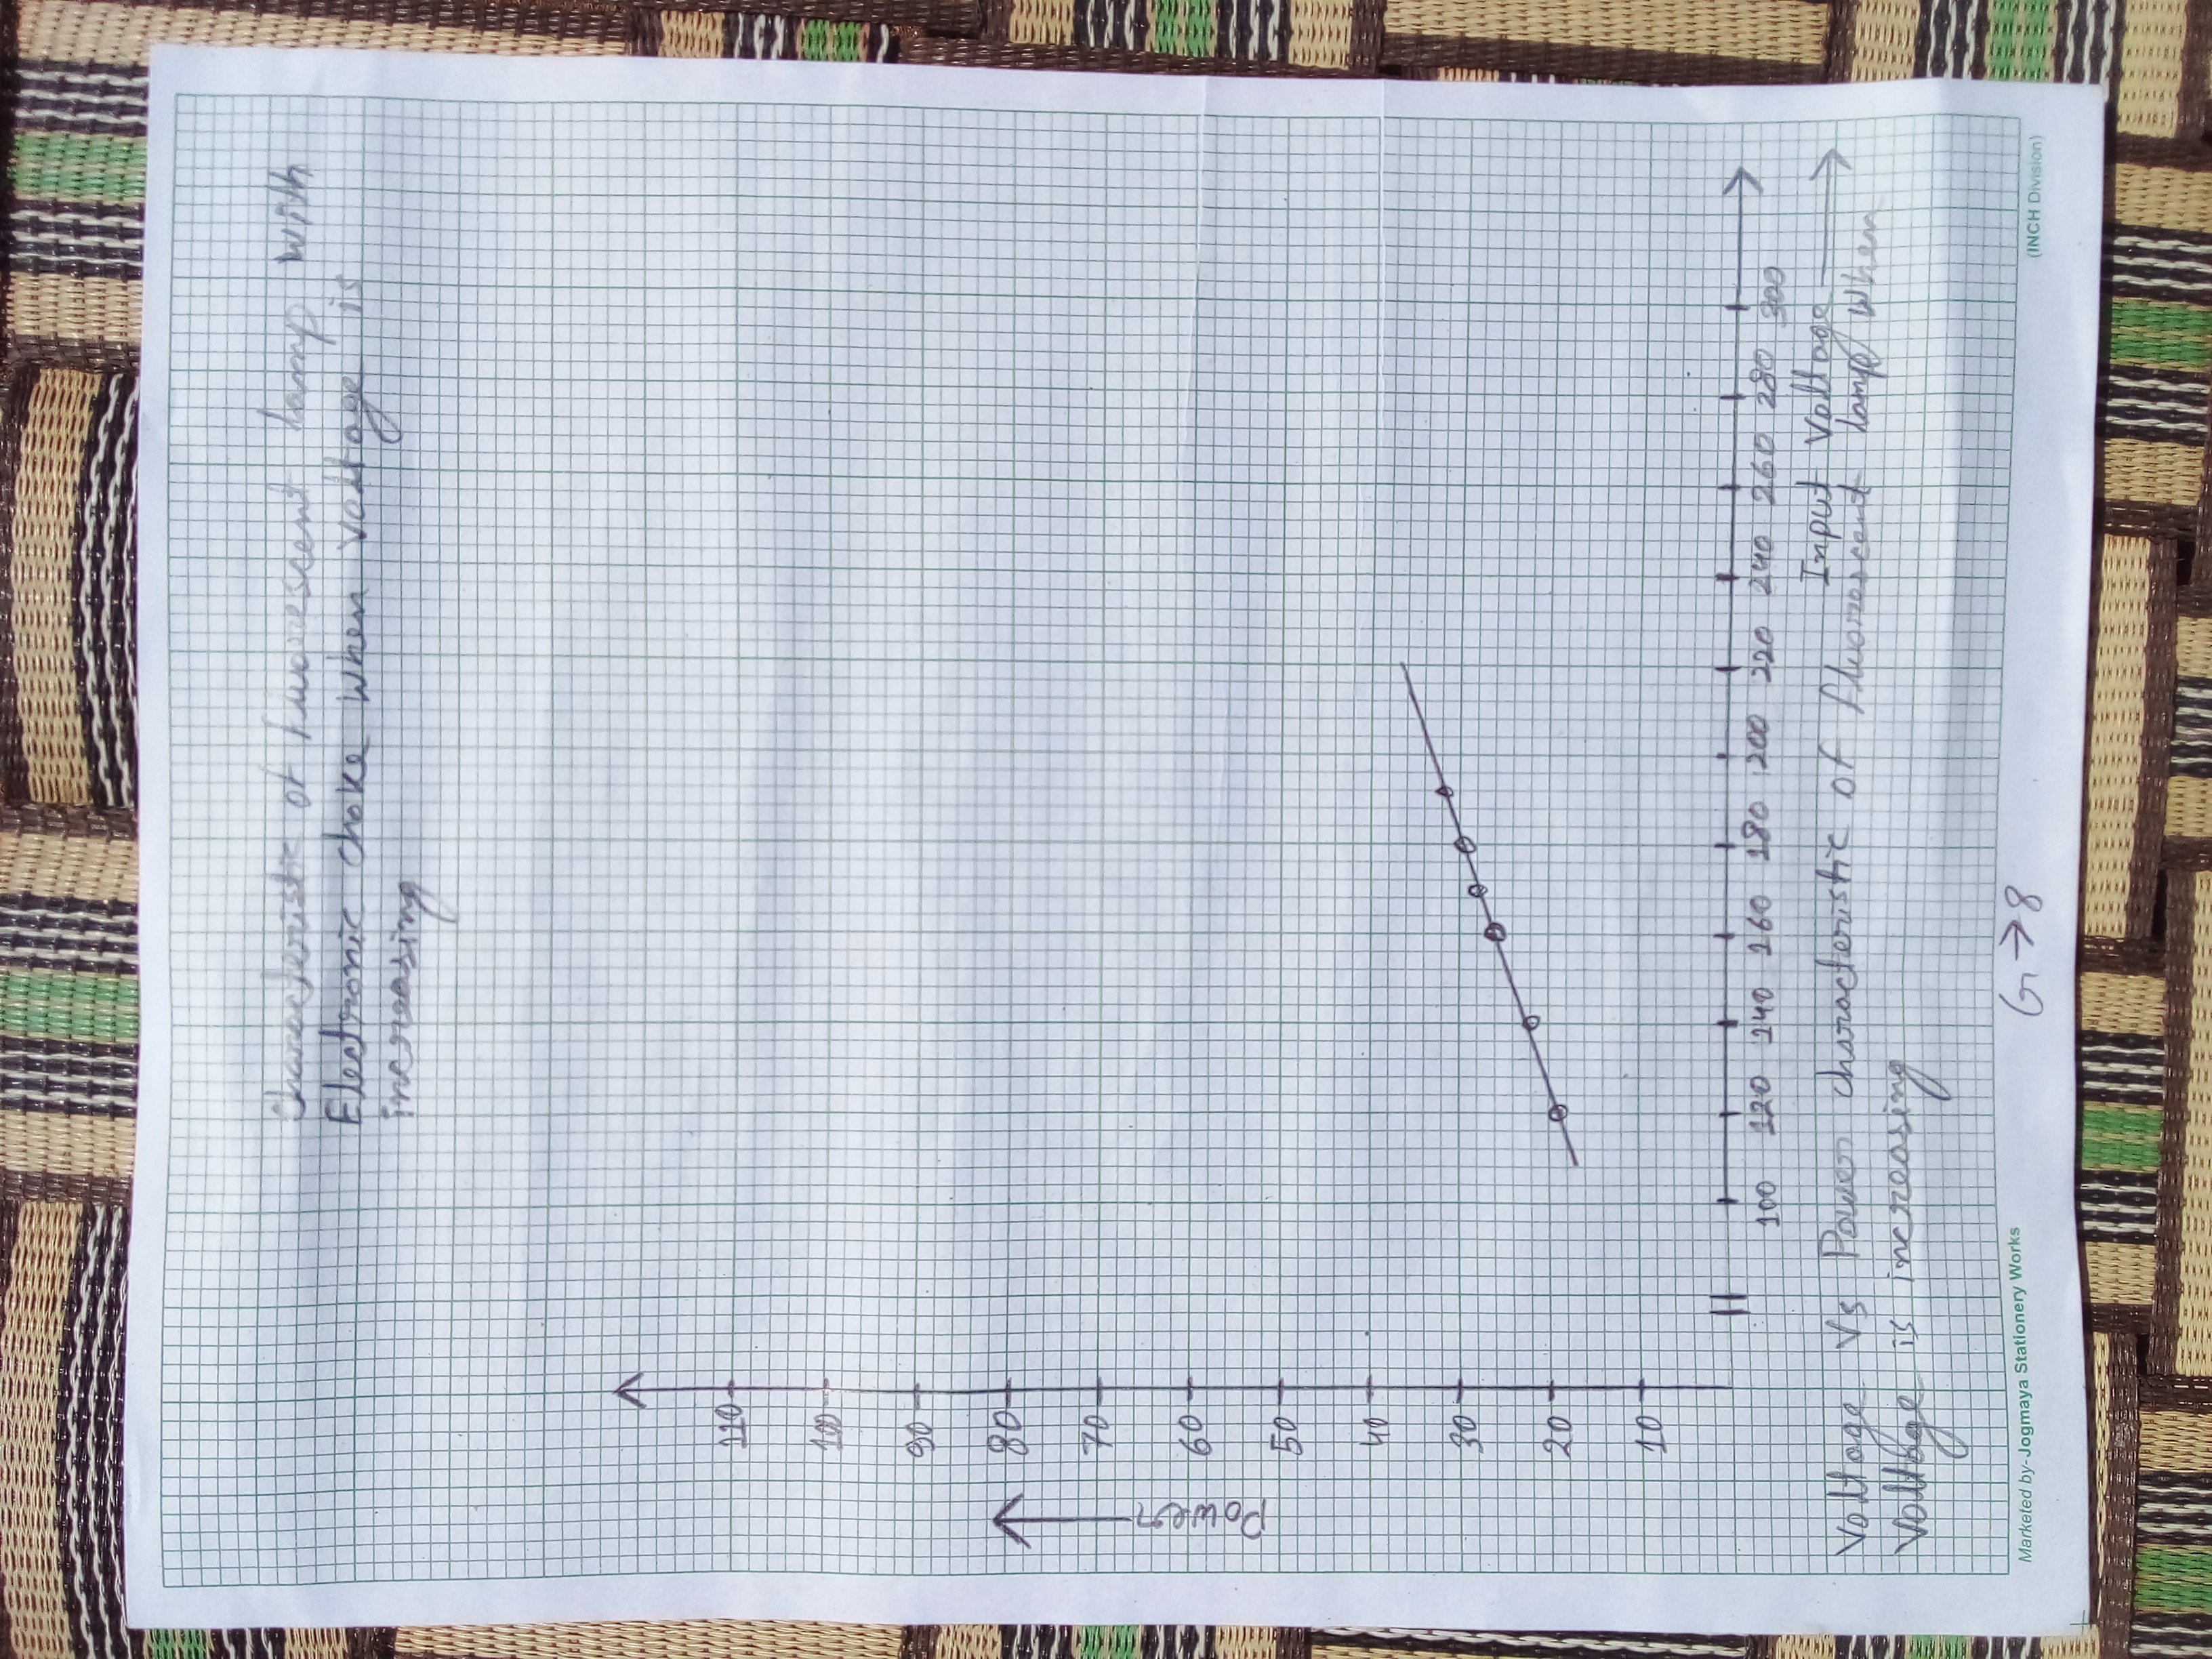 Characteristic of fluorescent lamp with
Electronic choke when voltage is
increasing
110
100
90
80
70
60
50
40
30
20
10
Power
100 120 140 160 180 200 220 240 260 280 300
Input Voltage
Voltage Vs Power characteristic of fluorescent lamp when
Voltage is increasing
Marketed by- Jogmaya Stationery Works
G→8
(INCH Division)